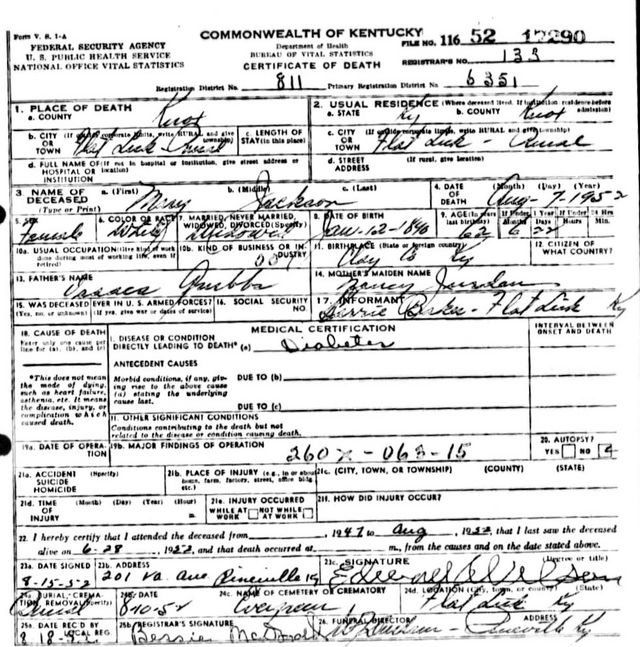 Form V. S. 1-A
COMMONWEALTH OF KENTUCKY
FEDERAL SECURITY AGENCY
U. S. PUBLIC HEALTH SERVICE
NATIONAL OFFICE VITAL STATISTICS
Department of Health
BUREAU OF VITAL STATISTICS
CERTIFICATE OF DEATH
FILE NO. 116 52 17290
REGISTRAR'S NO. 133
Registration District No. 811 Primary Registration District No. 6351
1. PLACE OF DEATH
a. COUNTY Knox
2. USUAL RESIDENCE (Where deceased lived. If institution: residence before admission)
a. STATE Ky b. COUNTY Knox
b. CITY (If outside corporate limits, write RURAL and give township) OR TOWN Flat Lick - Rural
c. LENGTH OF STAY (in this place)
c. CITY (If outside corporate limits, write RURAL and give township) OR TOWN Flat Lick - Rural
d. FULL NAME OF (If not in hospital or institution, give street address or location) HOSPITAL OR INSTITUTION
d. STREET ADDRESS (If rural, give location)
3. NAME OF DECEASED (Type or Print) a. (First) b. (Middle) c. (Last) Jackson
4. DATE OF DEATH (Month) (Day) (Year) Aug - 7 - 1952
5. SEX Female
6. COLOR OR RACE White
7. MARRIED, NEVER MARRIED, WIDOWED, DIVORCED (Specify) Widowed
8. DATE OF BIRTH Jan-12-1890
9. AGE (In years last birthday) 62 If Under 1 Year Months 6 Days 22 If Under 24 Hrs Hours Min.
10a. USUAL OCCUPATION (Give kind of work done during most of working life, even if retired)
10b. KIND OF BUSINESS OR INDUSTRY
11. BIRTHPLACE (State or foreign country) Clay Co Ky
12. CITIZEN OF WHAT COUNTRY?
13. FATHER'S NAME Grubbs
14. MOTHER'S MAIDEN NAME Nancy Jordan
15. WAS DECEASED EVER IN U. S. ARMED FORCES? (Yes, no, or unknown) (If yes, give war or dates of service)
16. SOCIAL SECURITY NO.
17. INFORMANT Flat Lick Ky
18. CAUSE OF DEATH
Enter only one cause per line for (a), (b), and (c)
MEDICAL CERTIFICATION
INTERVAL BETWEEN ONSET AND DEATH
I. DISEASE OR CONDITION DIRECTLY LEADING TO DEATH* (a) Diabetes
*This does not mean the mode of dying, such as heart failure, asthenia, etc. It means the disease, injury, or complication which caused death.
ANTECEDENT CAUSES
Morbid conditions, if any, giving rise to the above cause (a) stating the underlying cause last.
DUE TO (b)
DUE TO (c)
II. OTHER SIGNIFICANT CONDITIONS
Conditions contributing to the death but not related to the disease or condition causing death.
19a. DATE OF OPERATION
19b. MAJOR FINDINGS OF OPERATION
260X - 063-15
20. AUTOPSY? YES NO
21a. ACCIDENT SUICIDE HOMICIDE
21b. PLACE OF INJURY (e.g., in or about home, farm, factory, street, office bldg etc.)
21c. (CITY, TOWN, OR TOWNSHIP) (COUNTY) (STATE)
21d. TIME OF INJURY (Month) (Day) (Year) (Hour)
21e. INJURY OCCURRED WHILE AT WORK NOT WHILE AT WORK
21f. HOW DID INJURY OCCUR?
22. I hereby certify that I attended the deceased from 1947 to Aug, 1952, that I last saw the deceased
alive on 6-28, 1952, and that death occurred at m., from the causes and on the date stated above.
23a. DATE SIGNED 8-15-52
23b. ADDRESS 201 Va. Ave Pineville Ky
23c. SIGNATURE (Degree or title)
24a. BURIAL, CREMATION, REMOVAL (Specify) Burial
24b. DATE 8-10-52
24c. NAME OF CEMETERY OR CREMATORY Evergreen
24d. LOCATION (City, town, or county) (State) Flat Lick Ky
25a. DATE REC'D BY LOCAL REG.
25b. REGISTRAR'S SIGNATURE Bessie
26. FUNERAL DIRECTOR ADDRESS Pineville Ky